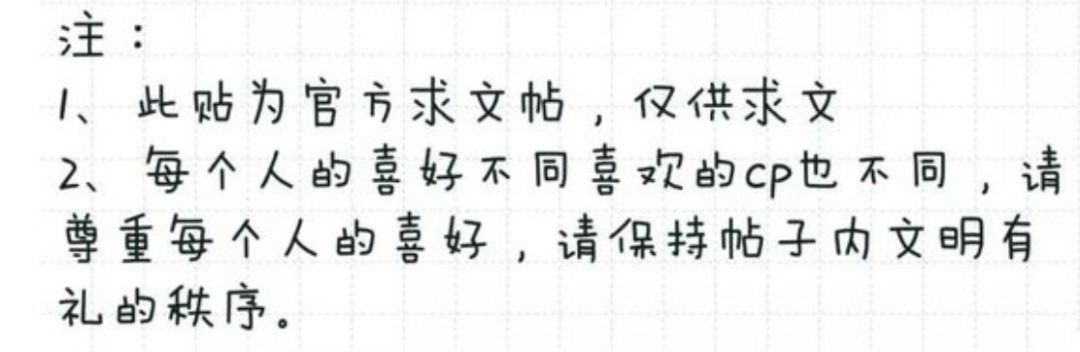 注：
1、此贴为官方求文帖，仅供求文
2、每个人的喜好不同喜欢的cp也不同，请
尊重每个人的喜好，请保持帖子内文明有
礼的秩序。